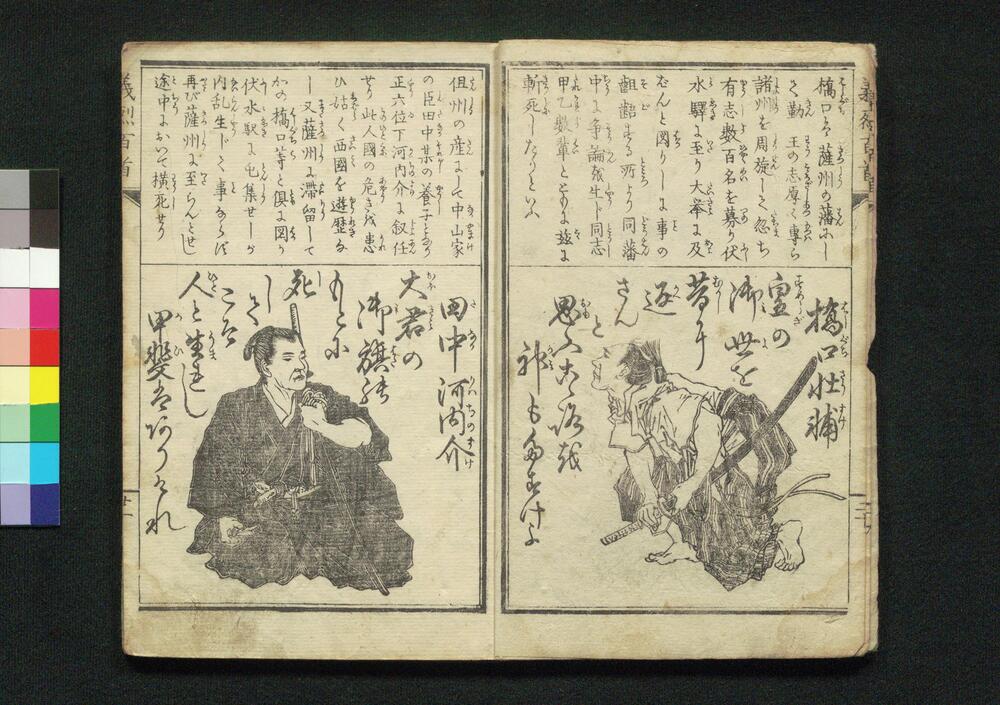 橋口は薩州の藩にし
て勤王の志厚く専ら
諸州を周旋して忽ち
有志数百名を募り伏
水驛に至り大挙に及
ばんと図りしに事の
齟齬する所より同藩
中に争論發生ト同志
甲乙数輩とともに茲に
斬死したりといふ
橋口壮輔
皇の
御世を
昔に
返
さん
と
思ふこころ越
神もたすけよ
佀州の産にして中山家
の臣田中某の養子となり
正六位下河内介に叙任
せり此人國の危きを患
ひ姑く西國を遊歴な
し又薩州に滞留して
かの橋口等と倶に図り
伏水駅に屯集せしが
内乱生トて事ならず
再び薩州に至らんとせし
途中において横死せり
田中河内介
大君の
御旗の
もとに
死
して
こそ
人と生れし
甲斐はありけれ
義烈百首